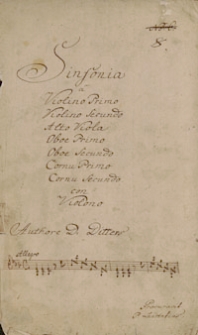 Sinfonia
a
Violino Primo
Violino Secundo
Alto Viola
Oboe Primo
Oboe Secundo
Cornu Primo
Cornu Secundo
con
Violono
Authore D. Ditters
Allegro